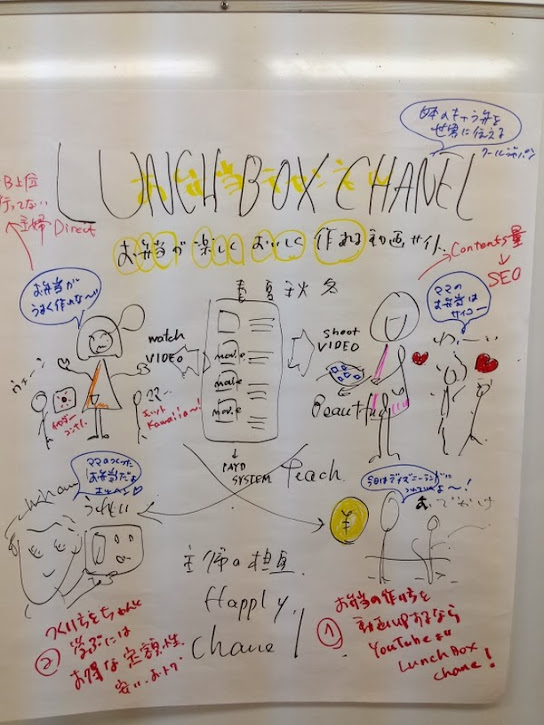 日本のキャラ弁を
世界に伝える
クールジャパン
LUNCH BOX CHANEL
お弁当チャンネル
お弁当が楽しくおいしく作れる動画サイト
主婦 Direct
Contents量
SEO
春夏秋冬
お弁当が
うまく作れな〜い
watch
VIDEO
movie
movie
movie
shoot
VIDEO
ママの
お弁当は
サイコー
Kawaii〜!
Beautiful
PAYD
SYSTEM
Teach
ママのつくった
お弁当だよ
うれしい
¥
今日はディズニーランド
おでかけ
Happly
Chanel
つくり方をちゃんと
② 学ぶには
お得な定額性
安い、おトク
お弁当の作り方を
① 動画UPするなら
YouTubeより
Lunch Box
chanel!